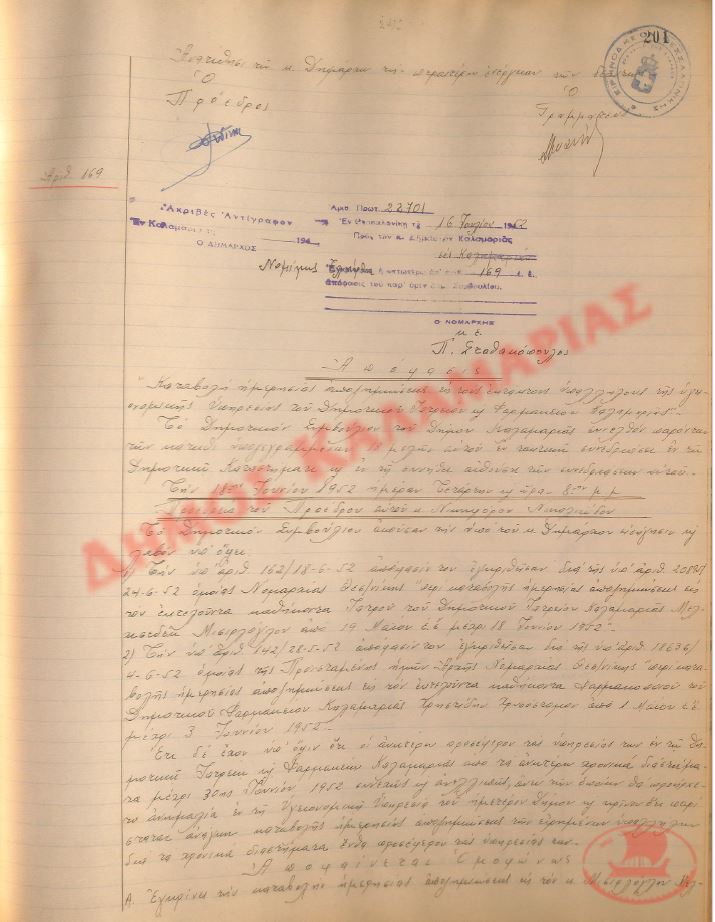 201
ΕΙΡΗΝΟΔΙΚΕΙΟΝ ΘΕΣΣΑΛΟΝΙΚΗΣ
Ἀνατίθησι τῷ κ. Δημάρχῳ τὴν περαιτέρω ἐνέργειαν
Ὁ Ὁ
Πρόεδρος Γραμματεὺς
Ἀριθ. 169
Ἀκριβὲς Ἀντίγραφον
Ἐν Καλαμαριᾷ τῇ 194
Ο ΔΗΜΑΡΧΟΣ
Αριθ. Πρωτ. 22701
Ἐν Θεσσαλονίκῃ τῇ 16 Ἰουλίου 1952
Πρὸς τὸν κ. Δήμαρχον Καλαμαριᾶς
εἰς Καλαμαριὰν
Νομίμως 169 ἐ. ἔ.
ἀπόφασις τοῦ Συμβουλίου.
Ο ΝΟΜΑΡΧΗΣ
κ.ἐ.
Π. Σταθακόπουλος
Ἀπόφασις
Καταβολὴ ἡμερησίας ἀποζημιώσεως εἰς τοὺς ἐκτάκτους ὑπαλλήλους τῆς ὑγει-
ονομικῆς ὑπηρεσίας τοῦ Δημοτικοῦ Ἰατρείου κ Φαρμακείου Καλαμαριᾶς
Τὸ Δημοτικὸν Συμβούλιον τοῦ Δήμου Καλαμαριᾶς συνελθὸν παρόντων
τῶν κάτωθι ὑπογεγραμμένων μελῶν αὐτοῦ ἐν τακτικῇ συνεδριάσει ἐν τῷ
Δημοτικῷ Καταστήματι κ ἐν τῇ συνήθει αἰθούσῃ τῶν συνεδριάσεων αὐτοῦ
Τὴν 18ην Ἰουνίου 1952 ἡμέραν Τετάρτην κ ὥραν 8ην μ.μ
Προεδρίᾳ τοῦ Προέδρου αὐτοῦ κ. Νικηφόρου Νικολαΐδου
Τὸ Δημοτικὸν Συμβούλιον ἀκοῦσαν τὴν ὑπὸ τοῦ κ. Δημάρχου εἰσήγησιν κ
λαβὸν ὑπ' ὄψει:
1) Τὴν ὑπ' ἀριθ. 162/18-6-52 ἀπόφασίν του ἐγκριθεῖσαν διὰ τῆς ὑπ' ἀριθ.
24-6-52 ὁμοίας Νομαρχίας Θεσ/νίκης "περὶ καταβολῆς ἡμερησίας ἀποζημιώσεως εἰς
τὸν ἐκτελοῦντα καθήκοντα Ἰατροῦ τοῦ Δημοτικοῦ Ἰατρείου Καλαμαριᾶς Μελ-
χισεδὲκ Μισιρλόγλου ἀπὸ 19 Μαΐου ἐ.ἔ μέχρι 18 Ἰουνίου 1952".
2) Τὴν ὑπ' ἀριθ. 142/28-5-52 ἀπόφασίν του ἐγκριθεῖσαν διὰ τῆς ὑπ' ἀριθ. 18636/
4-6-52 ὁμοίας τῆς Προϊσταμένης ἡμῶν Ἀρχῆς Νομαρχίας Θεσ/νίκης "περὶ κατα-
βολῆς ἡμερησίας ἀποζημιώσεως εἰς τὸν ἐκτελοῦντα καθήκοντα Φαρμακοποιοῦ τοῦ
Δημοτικοῦ Φαρμακείου Καλαμαριᾶς Χρυσόστομον ἀπὸ 1 Μαΐου ἐ.ἔ
μέχρι 3 Ἰουνίου 1952".
Ἔτι δὲ ἔχον ὑπ' ὄψιν ὅτι οἱ ἀνωτέρω προσέφερον τὰς ὑπηρεσίας των ἐν τῷ Δη-
μοτικῷ Ἰατρείῳ κ Φαρμακείῳ Καλαμαριᾶς ἀπὸ τὰ ἀνωτέρω χρονικὰ διαστήμα-
τα μέχρι 30ης Ἰουνίου 1952 συνεχῶς κ ἀνελλιπῶς, ἄνευ τῶν ὁποίων θὰ
ἀνωμαλία ἐν τῇ Ὑγειονομικῇ Ὑπηρεσίᾳ τοῦ ἡμετέρου Δήμου κ
ἀνάγκη καταβολῆς ἡμερησίας ἀποζημιώσεως τῶν εἰρημένων ὑπαλλήλων
διὰ τὰ χρονικὰ διαστήματα ἔνθα προσέφερον τὰς ὑπηρεσίας των.
Ἀποφαίνεται Ὁμοφώνως
Α. Ἐγκρίνει τὴν καταβολὴν ἡμερησίας ἀποζημιώσεως εἰς τὸν κ. Μισιρλόγλου Μελ-
ΔΗΜΟΣ ΚΑΛΑΜΑΡΙΑΣ